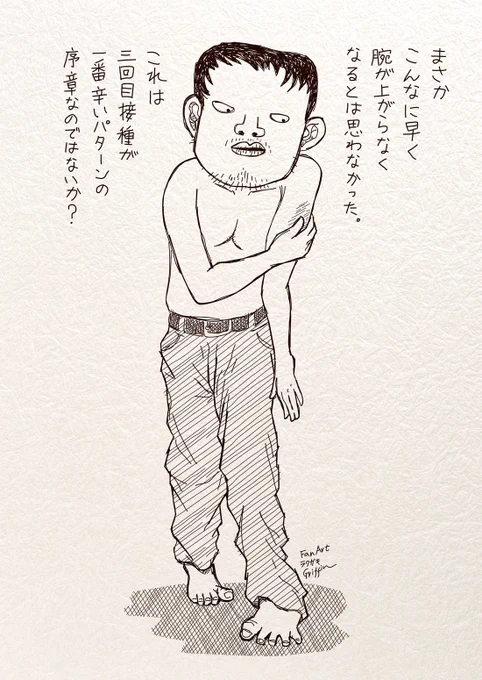 まさか
こんなに早く
腕が上がらなく
なるとは思わなかった。
これは
三回目接種が
一番辛いパターンの
序章なのではないか？
Fan Art
ラクガキ
Griffin